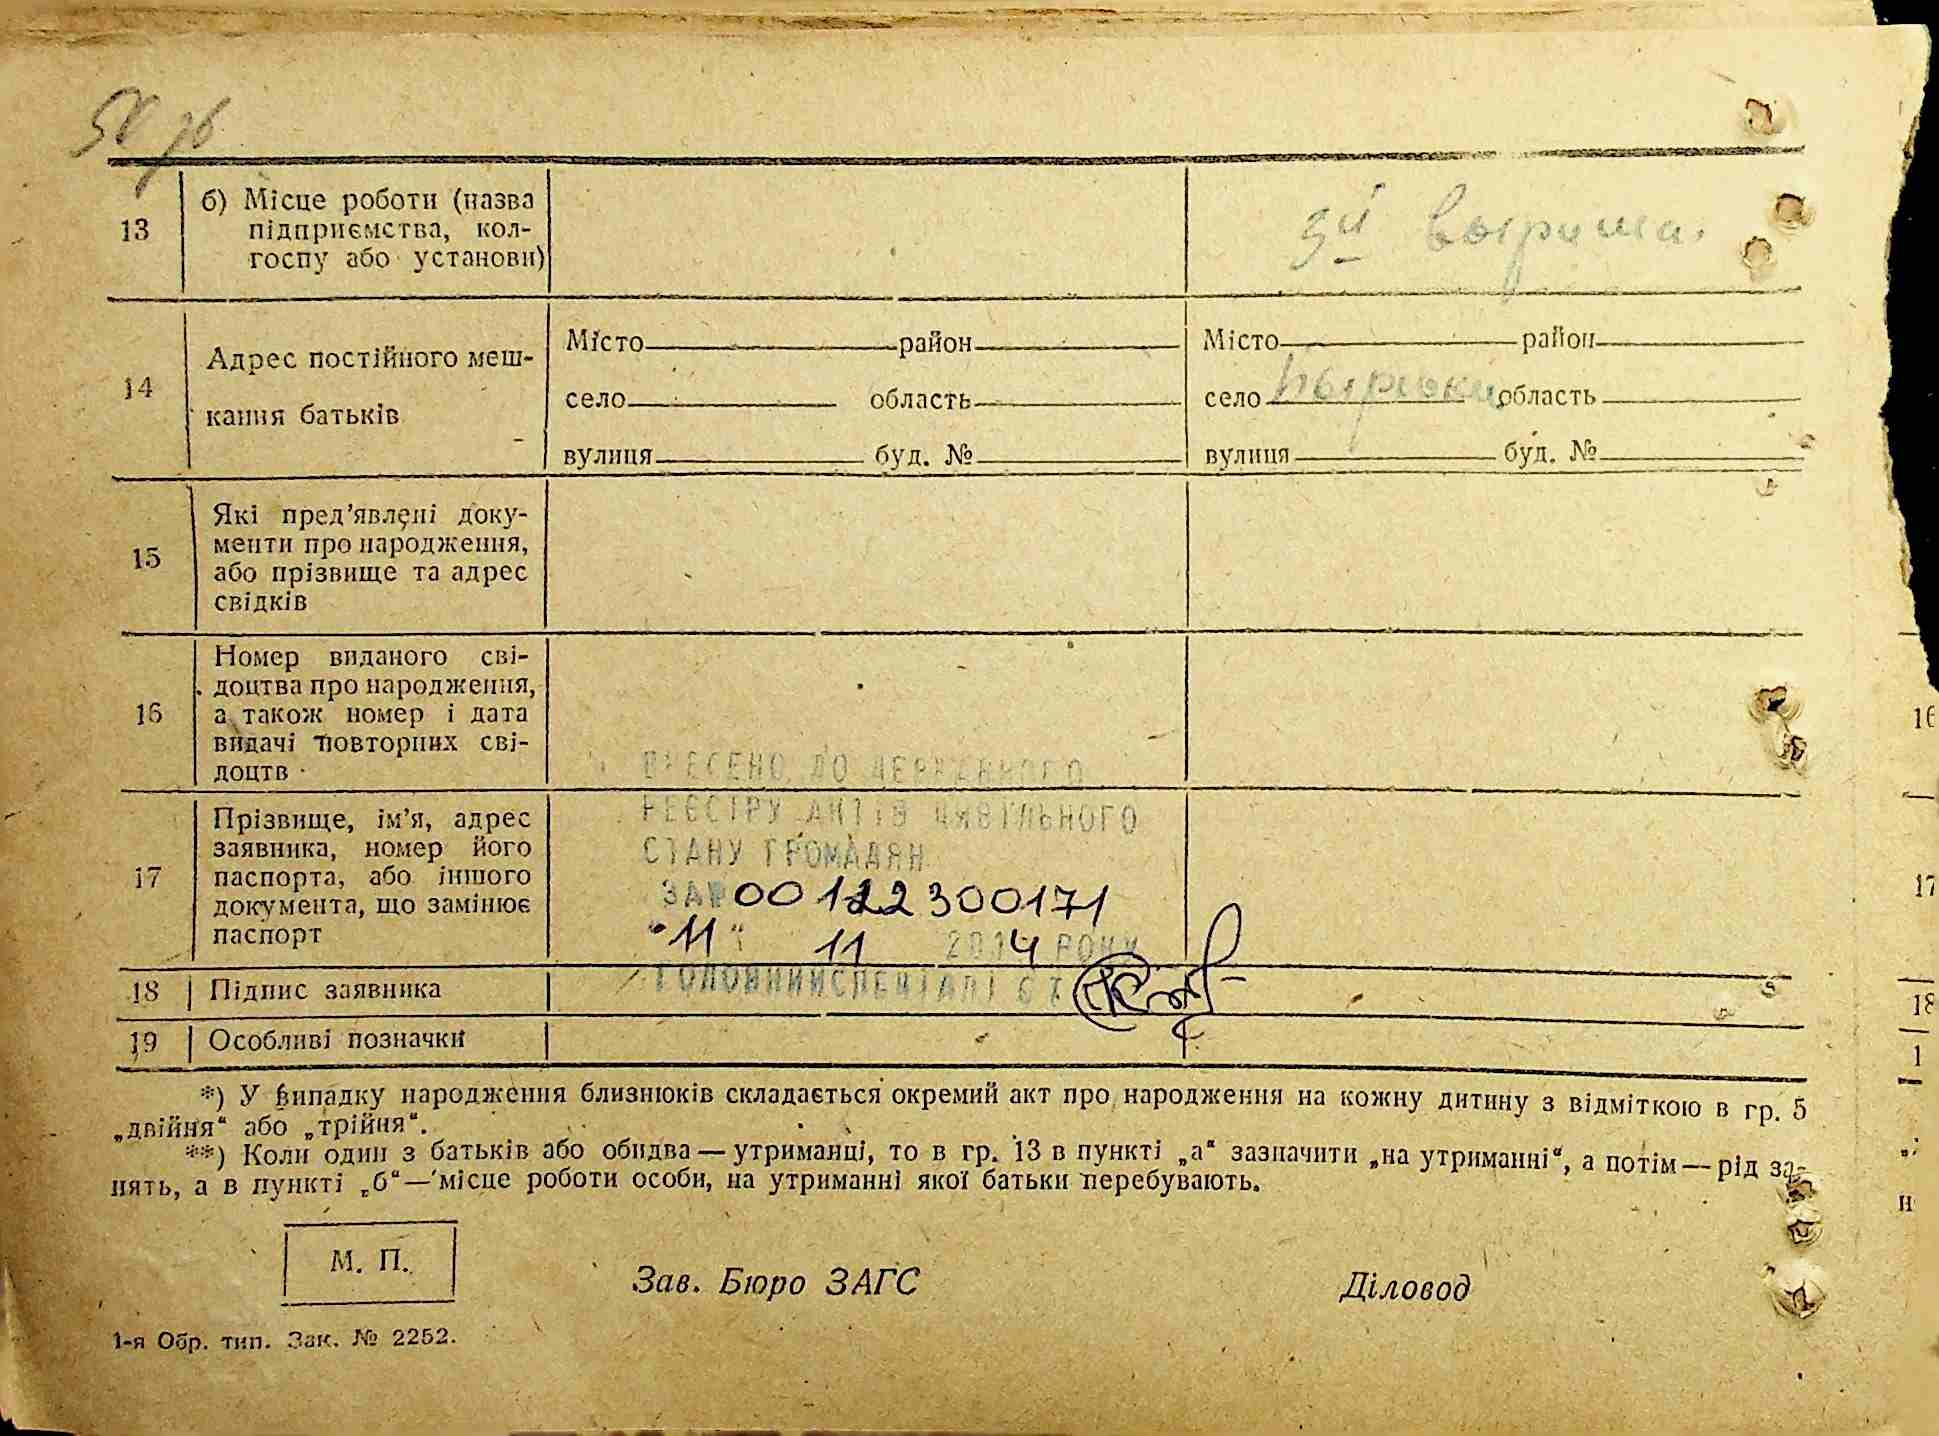 13
б) Місце роботи (назва
підприємства, кол-
госпу або установи)
14
Адрес постійного меш-
кання батьків
Місто район
село область
вулиця буд. №
Місто район
село область
вулиця буд. №
15
Які пред’явлені доку-
менти про народження,
або прізвище та адрес
свідків
16
Номер виданого сві-
доцтва про народження,
а також номер і дата
видачі повторних сві-
доцтв
17
Прізвище, ім’я, адрес
заявника, номер його
паспорта, або іншого
документа, що замінює
паспорт
ВНЕСЕНО ДО ДЕРЖАВНОГО
РЕЄСТРУ АКТІВ ЦИВІЛЬНОГО
СТАНУ ГРОМАДЯН
ЗА № 00122300171
"11" 11 2014 РОКУ
ГОЛОВНИЙ СПЕЦІАЛІСТ
18
Підпис заявника
19
Особливі позначки
*) У випадку народження близнюків складається окремий акт про народження на кожну дитину з відміткою в гр. 5
„двійня“ або „трійня“.
**) Коли один з батьків або обидва — утриманці, то в гр. 13 в пункті „а“ зазначити „на утриманні“, а потім — рід за-
нять, а в пункті „б“ — місце роботи особи, на утриманні якої батьки перебувають.
М. П.
Зав. Бюро ЗАГС
Діловод
1-я Обр. тип. Зак. № 2252.
16
17
18
1